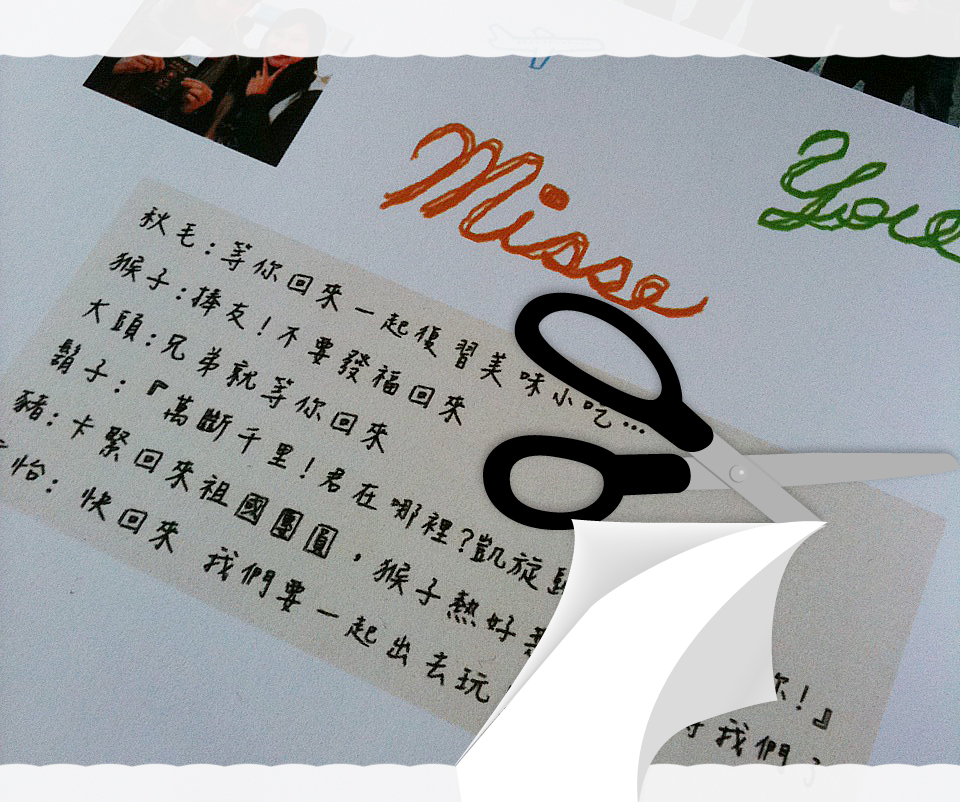 Misse
You
秋毛:等你回來一起復習美味小吃…
猴子:捧友!不要發福回來
大頭:兄弟就等你回來
鬍子:『萬斷千里!君在哪裡?凱旋 你!』
豬:卡緊回來祖國團圓,猴子熱好 等我們?
怡:快回來 我們要一起出去玩